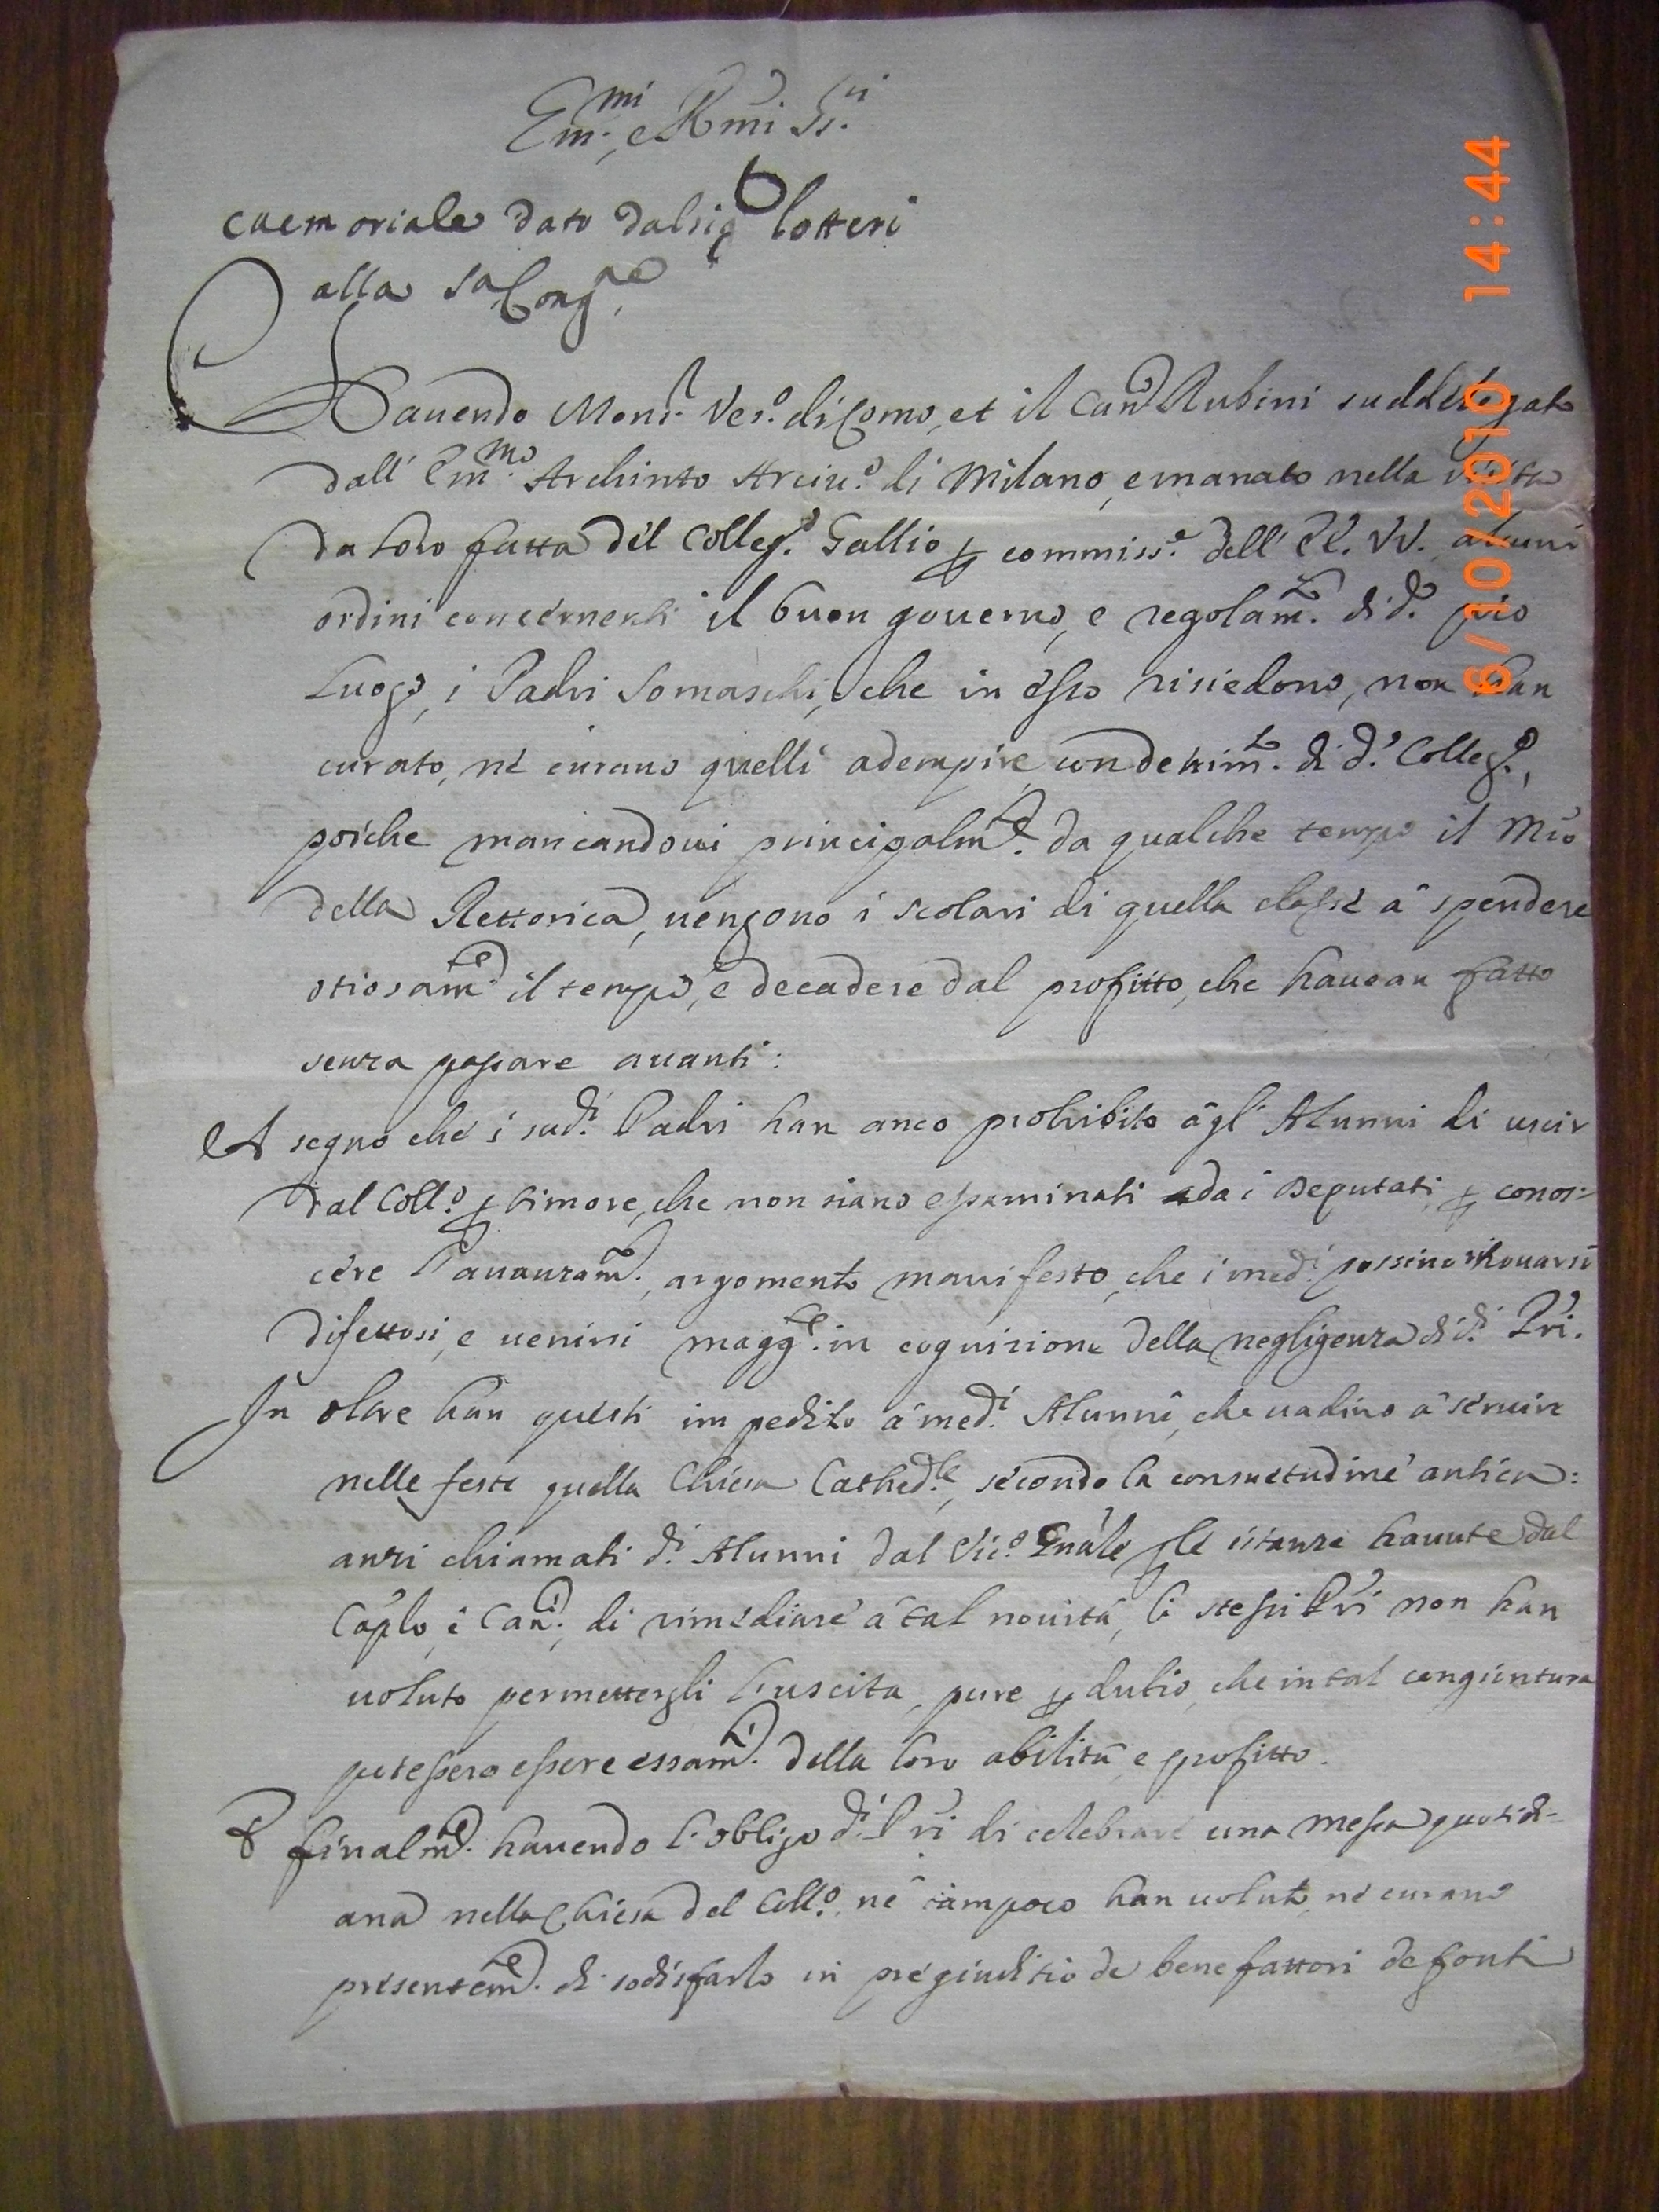 Em.mi, e Rmi SS.ri
Memoriale dato dal sig.r Lotteri
alla Sa. Cong.ne
Hauendo Mons.r Ves.o di Como, et il Can.o Rubini suddelegato
dall' Em.mo Archinto Arciu.o di Milano, emanato nella visita
da loro fatta del Colleg.o Gallio p commiss.e dell' EE. VV. alcuni
ordini concernenti il buon gouerno, e regolam.to di d.o pio
Luogo, i Padri Somaschi, che in esso risiedono, non han
curato, nè curano quelli adempire con detrim.to di d.o Colleg.o,
poiche mancandoui principalm.te da qualche tempo il Mro
della Rettorica, uengono i scolari di quella classe à spendere
otiosam.e il tempo, e decadere dal profitto, che haueau fatto
senza passare auanti:
A segno che i sud.i Padri han anco prohibito àgl' Alunni di uscir
dal Coll.o p timore, che non siano essaminati da i Deputati, p conos:
cere l'auanzam.to, argomento manifesto, che i med.i possino ritrouarsi
difettosi, e uenirsi magg.te in cognizione della negligenza di d.i Pri.
In oltre han questi impedito à med.i Alunni, che uadino à seruire
nelle feste quella Chiesa Cathed.le, secondo la consuetudine antica:
anzi chiamati d.i Alunni dal Vic.o Gnàle p le istanze hauute dal
Caplo, e Can.i, di rimediare à tal nouità, li stessi Pri non han
uoluto permettergli l'uscita, pure p dubio, che in tal congiuntura
potessero essere essam.ti della loro abilità, e profitto.
E finalm.e hauendo l'obligo d.i Pri di celebrare una messa quotidi-
ana nella Chiesa del Coll.o, nè tampoco han uoluto, nè curano
presentem.e di sodisfarlo in pregiuditio de benefattori defonti
6/10/2010 14:44